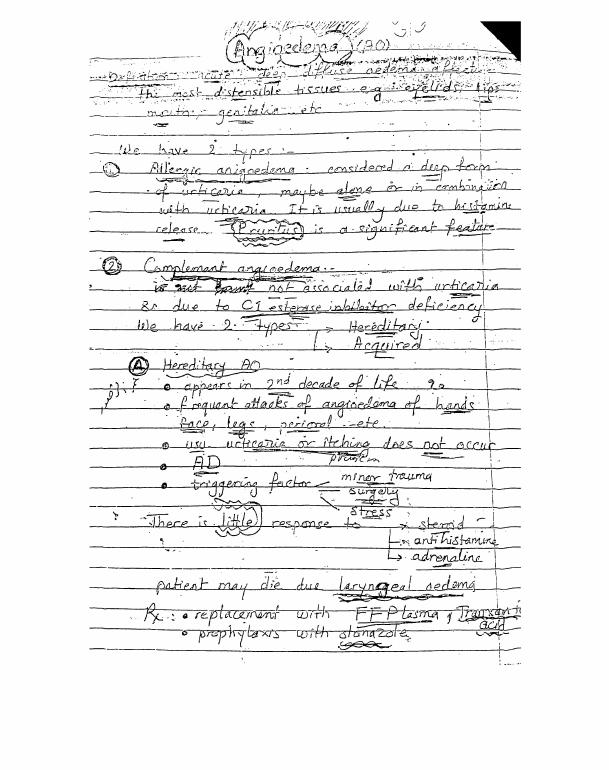 Angioedema (AO)
Definition: acute deep diffuse oedema affect
the most distensible tissues e.g: eyelids, lips
mouth, genitalia etc
We have 2 types :-
① Allergic anigoedema : considered a deep form
of urticaria maybe alone or in combination
with urticaria. It is usually due to histamine
release. Pruritus is a significant feature
② Complemant angioedema :-
not associated with urticaria
& due to C1 esterase inhibitor deficiency
We have 2 types → Hereditary
→ Acquired
Ⓐ Hereditary AO
• appears in 2nd decade of life
• frequent attacks of angioedema of hands
face, legs, perioral etc.
• usu. urticaria or itching does not occur
• AD
• triggering factor minor trauma
surgery
stress
There is little response to steroid
→ antihistamine
→ adrenaline
patient may die due laryngeal oedema
Rx : • replacement with FFPlasma,
acid
• prophylaxis with stanazole